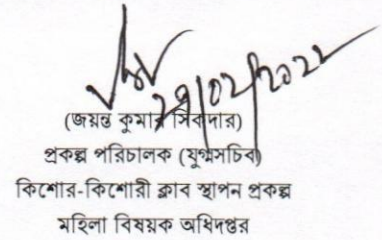 ২৭/০২/২০২২
(জয়ন্ত কুমার সিকদার)
প্রকল্প পরিচালক (যুগ্মসচিব)
কিশোর-কিশোরী ক্লাব স্থাপন প্রকল্প
মহিলা বিষয়ক অধিদপ্তর